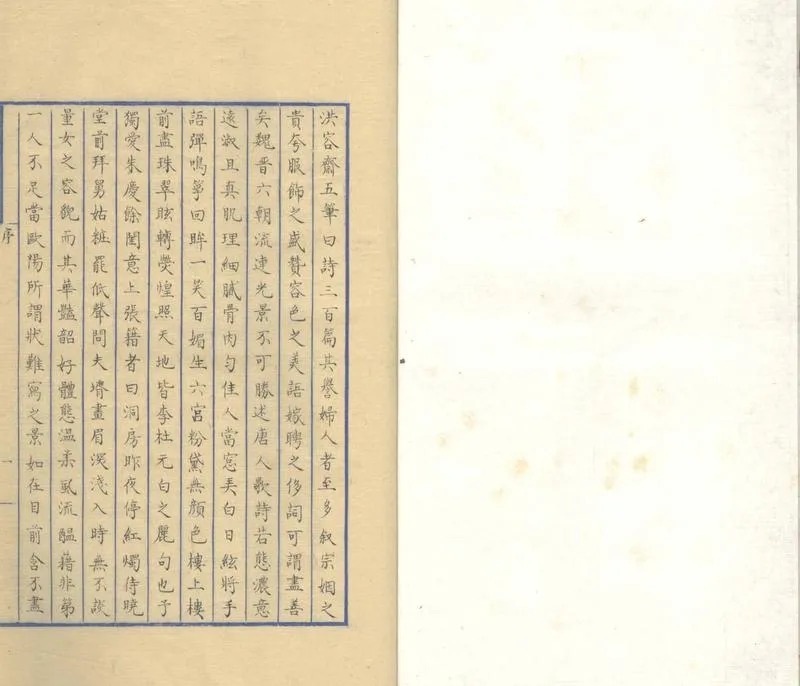 洪容齋五筆曰詩三百篇其譽婦人者至多叙宗姻之
貴夸服飾之盛贊容色之美語嫁聘之侈詞可謂盡善
矣魏晉六朝流連光景不可勝述唐人歌詩若態濃意
遠淑且真肌理細膩骨肉勻佳人當窓弄白日絃將手
語彈鳴箏回眸一笑百媚生六宮粉黛無顏色樓上樓
前盡珠翠眩轉熒煌照天地皆李杜元白之麗句也予
獨愛朱慶餘閨意上張籍者曰洞房昨夜停紅燭待曉
堂前拜舅姑粧罷低聲問夫壻畫眉深淺入時無不談
量女之容貌而其華豔韶好體態溫柔風流醞藉非第
一人不足當歐陽所謂狀難寫之景如在目前含不盡
序
一